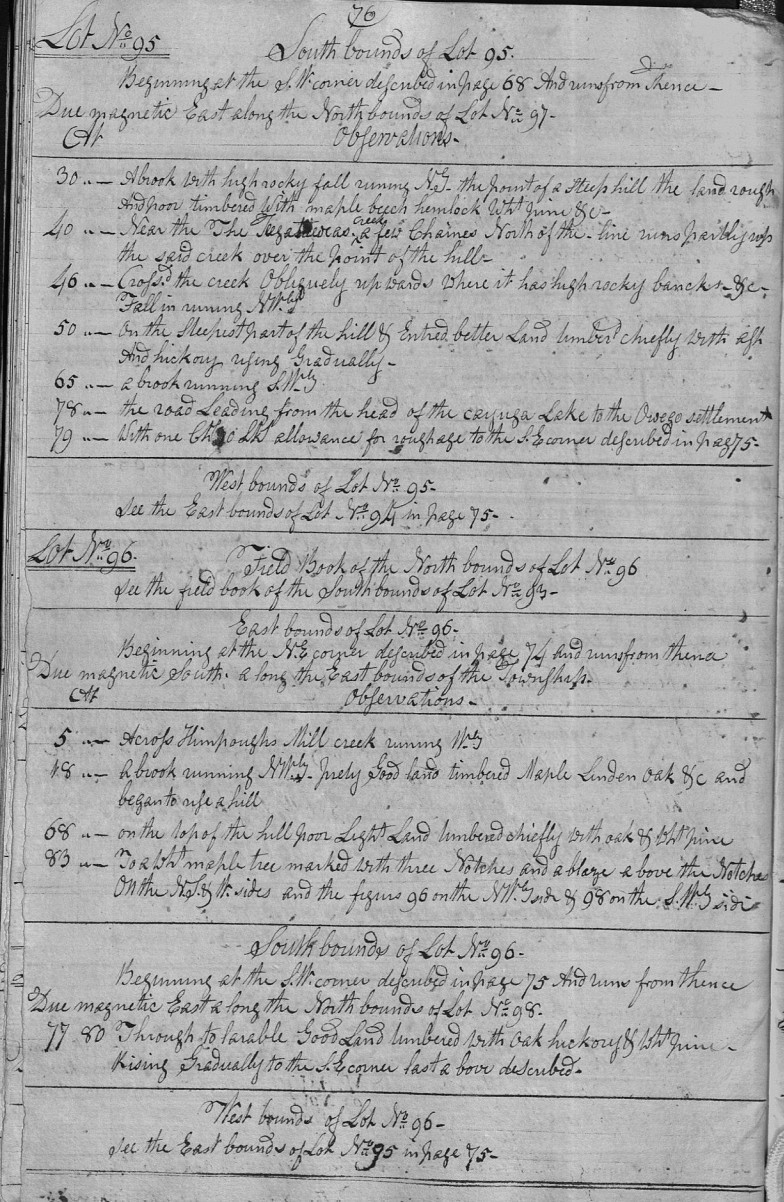 76
Lot No. 95
South bounds of Lot 95.
Beginning at the S.W. corner described in page 68 And runs from thence -
Due magnetic East along the North bounds of Lot No. 97 -
At Observations -
30 " - A brook with high rocky fall runing Nly the point of a steep hill the land rough
And poor timbered with maple beech hemlock Wht pine &c -
40 " - Near the The creek a few Chaines North of the line runs partly up
the said creek over the point of the hill -
46 " - Cross'd the creek Obliquely upwards where it has high rocky bancks - &c -
Fall in runing NWly
50 " - On the steepest part of the hill & Entred better Land timberd chiefly with ash
And hickory rising Gradually -
65 " - a brook running S.Wly
78 " - the road Leading from the head of the cayuga Lake to the Owego settlement
79 " - With one Chn Lks allowance for roughage to the S.E corner described in pag 75 -
West bounds of Lot No. 95 -
See the East bounds of Lot No. 94 in page 75 -
Lot No. 96.
Field Book of the North bounds of Lot No. 96
See the field book of the South bounds of Lot No. 93 -
East bounds of Lot No. 96 -
Beginning at the N.E corner described in page 74 and runs from thence
Due magnetic South. a long the East bounds of the Township.
At Observations -
5 " - Across Himpoughs Mill creek runing Wly
18 " - A brook running NWly - prety Good land timbered Maple Linden oak &c and
began to rise a hill
68 " - on the top of the hill poor Light Land timbered chiefly with oak & Wht pine
83 " - To a Wht maple tree marked with three Notches and a blaze a bove the Notches
On the N.S. & W. sides and the figure 96 on the NWly side & 98 on the S.Wly side
South bounds of Lot No. 96 -
Beginning at the S.W. corner described in page 75 And runs from thence
Due magnetic East a long the North bounds of Lot No. 98 -
77 80 Through to larable Good Land timbered with oak hickory & Wht pine -
Rising Gradually to the S.E corner last a bove described -
West bounds of Lot No. 96 -
See the East bounds of Lot No. 95 in page 75 -